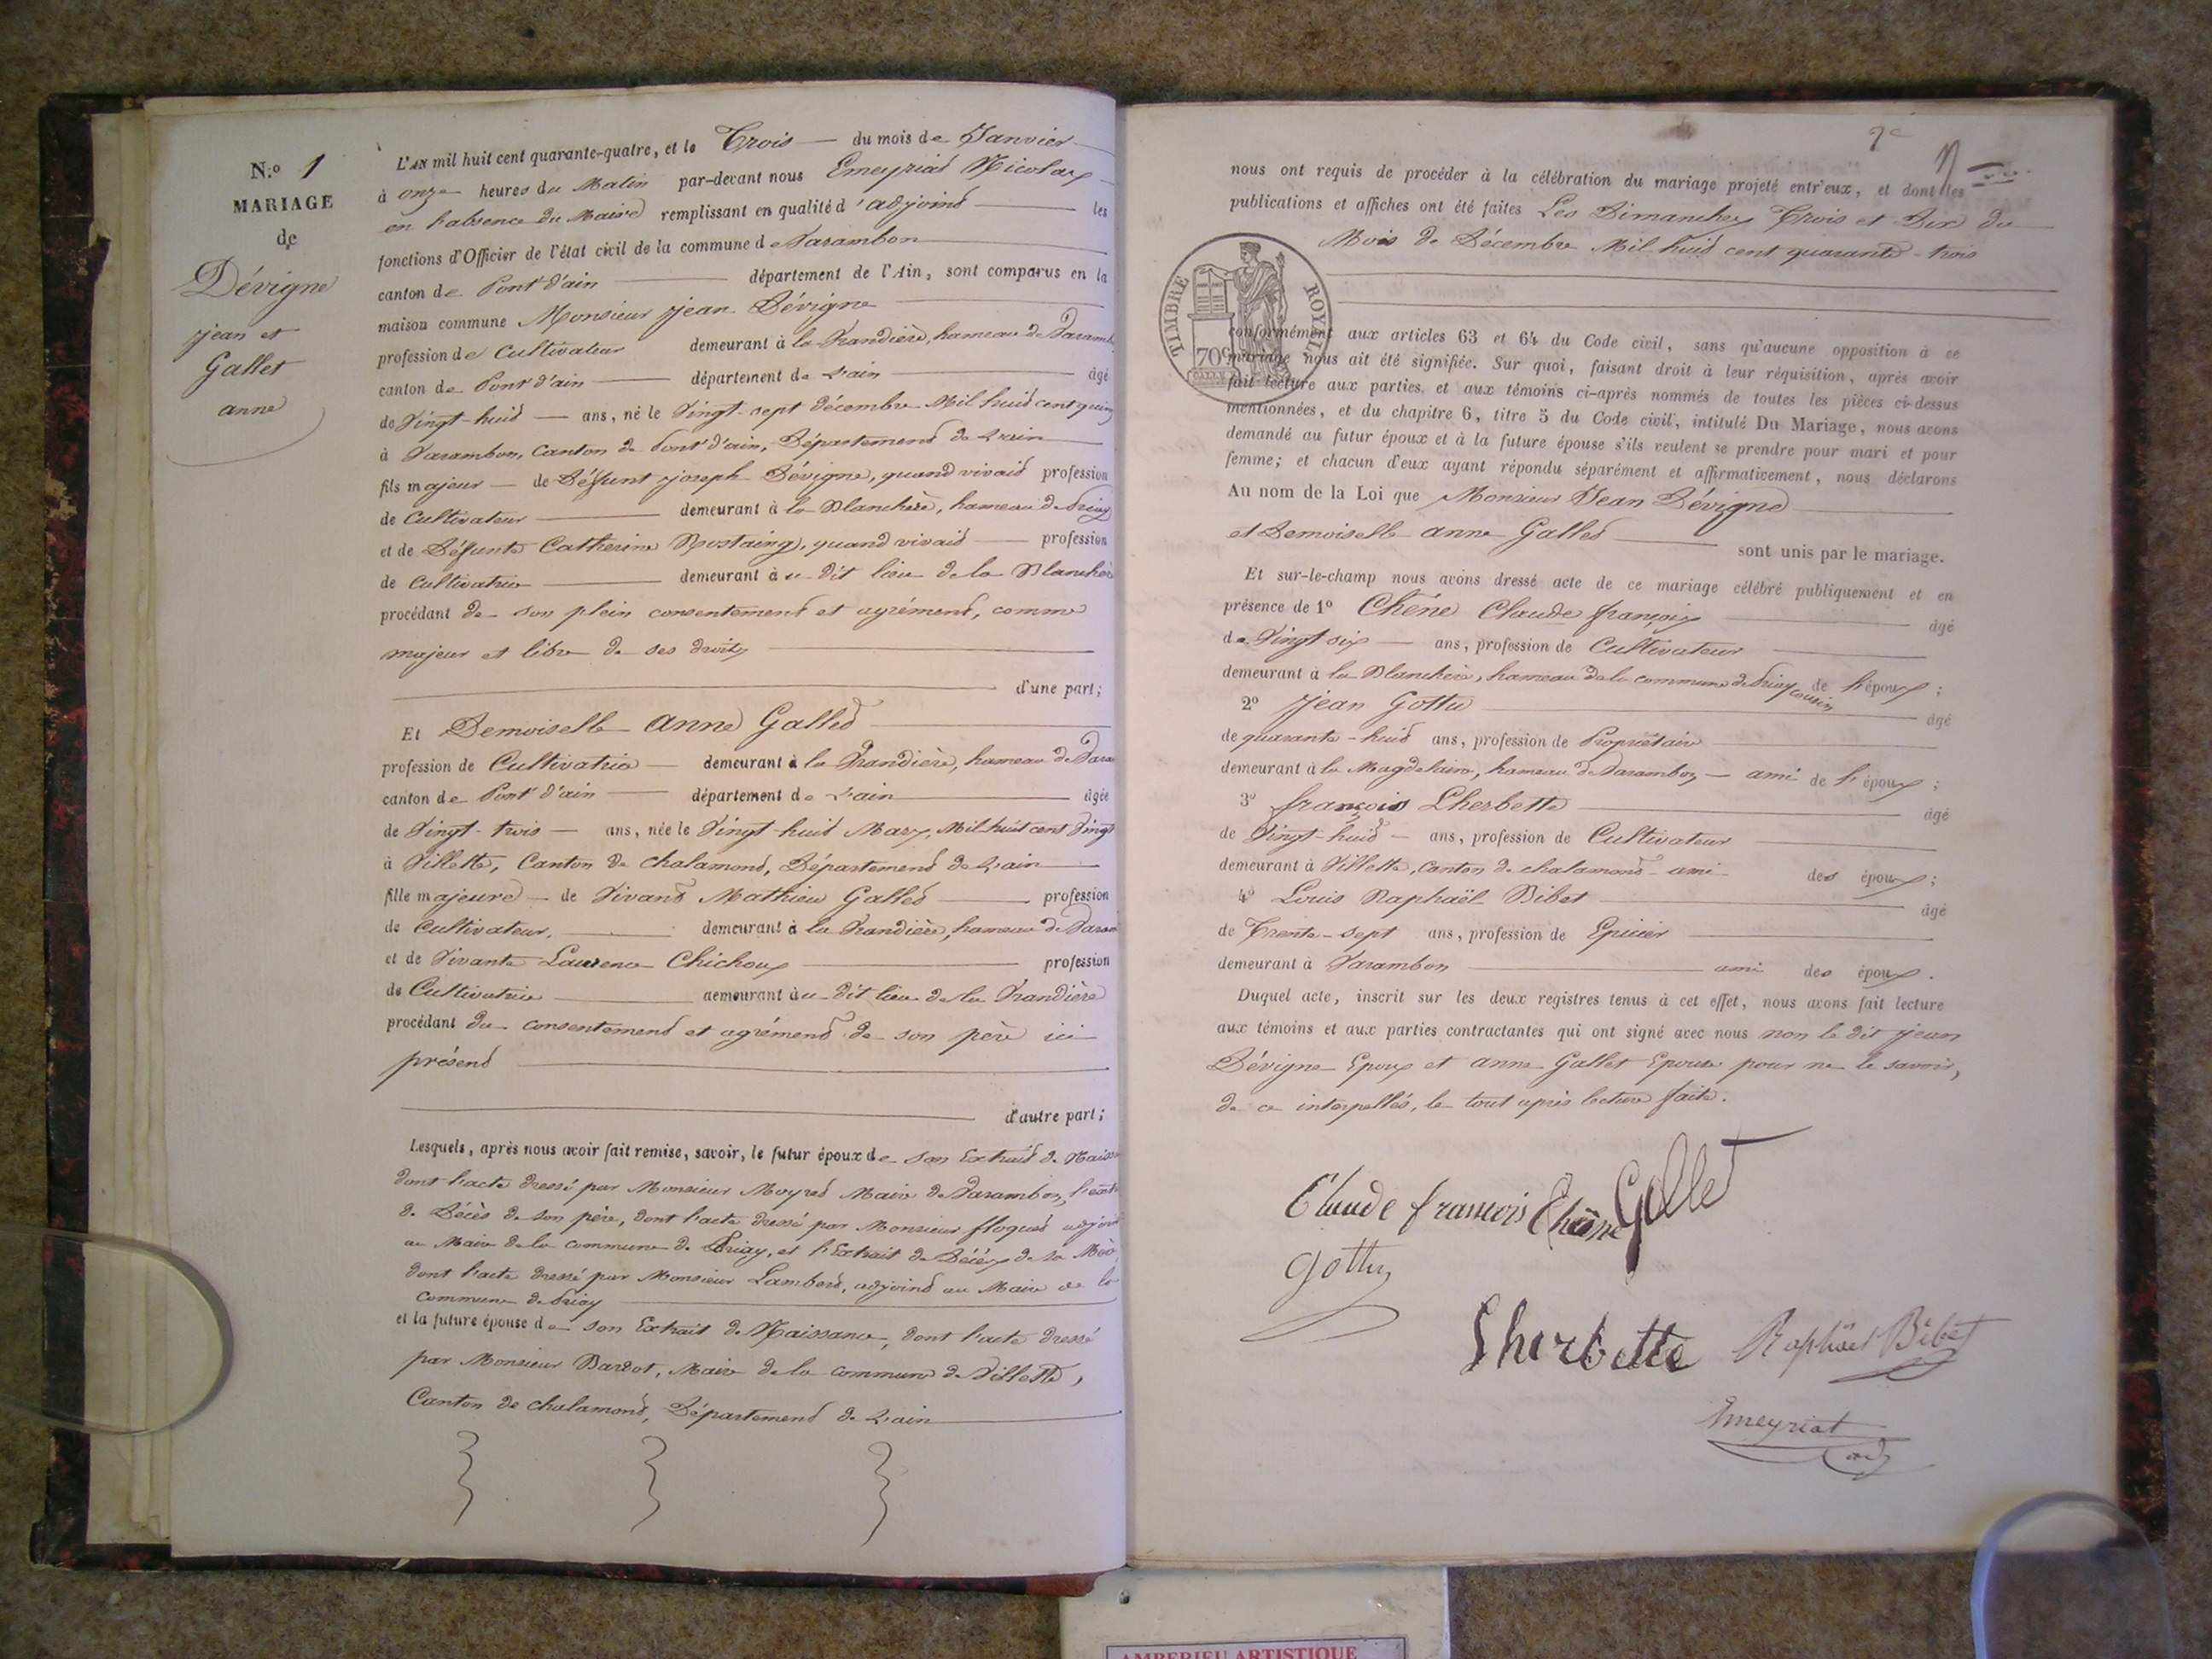 N.o 1
MARIAGE
de
Dévigne
jean et
Gallet
anne
L'AN mil huit cent quarante-quatre, et le Trois du mois de Janvier
à onze heures du Matin par-devant nous Emeyriat Nicolas
en l'absence du Maire remplissant en qualité d'adjoint les
fonctions d'Officier de l'état civil de la commune de Varambon
canton de Pont d'ain département de l'Ain, sont comparus en la
maison commune Monsieur jean Dévigne
profession de Cultivateur demeurant à la hameau de Varamb
canton de Pont d'ain département de L'ain âgé
de Vingt-huit ans, né le Vingt-sept décembre Mil huit cent quinz
à Varambon, Canton de Pont d'ain, Département de L'ain
fils majeur de Défunt joseph Dévigne, quand vivait profession
de Cultivateur demeurant à la Blanchère, hameau de Priay
et de Défunte Catherine Rostaing, quand vivait profession
de Cultivatrice demeurant au dit lieu de la Blanchère
procédant de son plein consentement et agrément, comme
majeur et libre de ses droits
d'une part;
Et Demoiselle anne Gallet
profession de Cultivatrice demeurant à la hameau de Vara
canton de Pont d'ain département de L'ain âgée
de Vingt-trois ans, née le Vingt-huit Mars, Mil huit cent Vingt
à Villette, Canton de chalamont, Département de L'ain
fille majeure de Vivant Mathieu Gallet profession
de Cultivateur, demeurant à la hameau de Varam
et de Vivante Laurence Chichoux profession
de Cultivatrice demeurant au dit lieu de la
procédant du consentement et agrément de son père ici
présent
d'autre part;
Lesquels, après nous avoir fait remise, savoir, le futur époux de son Extrait de Naiss
dont l'acte dressé par Monsieur Maire de Varambon, l'ext
de Décès de son père, dont l'acte dressé par Monsieur floquet adjoint
au Maire de la commune de Priay, et l'Extrait de Décès de sa Mère
dont l'acte dressé par Monsieur Lambert, adjoint au Maire de la
commune de Priay
et la future épouse de son Extrait de Naissance, dont l'acte dressé
par Monsieur Bardot, Maire de la commune de Villette,
Canton de chalamont, Département de L'ain
nous ont requis de procéder à la célébration du mariage projeté entr'eux, et dont les
publications et affiches ont été faites Les Dimanches Trois et Dix du
Mois de Décembre Mil huit cent quarante-trois
TIMBRE ROYAL
70c
conformément aux articles 63 et 64 du Code civil, sans qu'aucune opposition à ce
mariage nous ait été signifiée. Sur quoi, faisant droit à leur réquisition, après avoir
fait lecture aux parties, et aux témoins ci-après nommés de toutes les pièces ci-dessus
mentionnées, et du chapitre 6, titre 5 du Code civil, intitulé Du Mariage, nous avons
demandé au futur époux et à la future épouse s'ils veulent se prendre pour mari et pour
femme; et chacun d'eux ayant répondu séparément et affirmativement, nous déclarons
Au nom de la Loi que Monsieur Jean Dévigne
et Demoiselle anne Gallet sont unis par le mariage.
Et sur-le-champ nous avons dressé acte de ce mariage célébré publiquement et en
présence de 1o Chêne Claude françois âgé
de Vingt six ans, profession de Cultivateur
demeurant à la Blanchère, hameau de la commune de Priay cousin de l'époux;
2o jean Gottu âgé
de quarante-huit ans, profession de Propriétaire
demeurant à la Magdelaine, hameau de Varambon ami de l'époux;
3o françois Lherbette âgé
de Vingt-huit ans, profession de Cultivateur
demeurant à Villette, canton de chalamont ami des époux;
4o Louis Raphaël Bibet âgé
de Trente-sept ans, profession de Epicier
demeurant à Varambon ami des époux.
Duquel acte, inscrit sur les deux registres tenus à cet effet, nous avons fait lecture
aux témoins et aux parties contractantes qui ont signé avec nous non le dit jean
Dévigne Epoux et anne Gallet Epouse pour ne le savoir,
de ce interpellés, le tout après lecture faite.
Claude francois Chêne Gallet
gottu
Lherbette Raphaël Bibet
Emeyriat
adj
AMBERIEU ARTISTIQUE